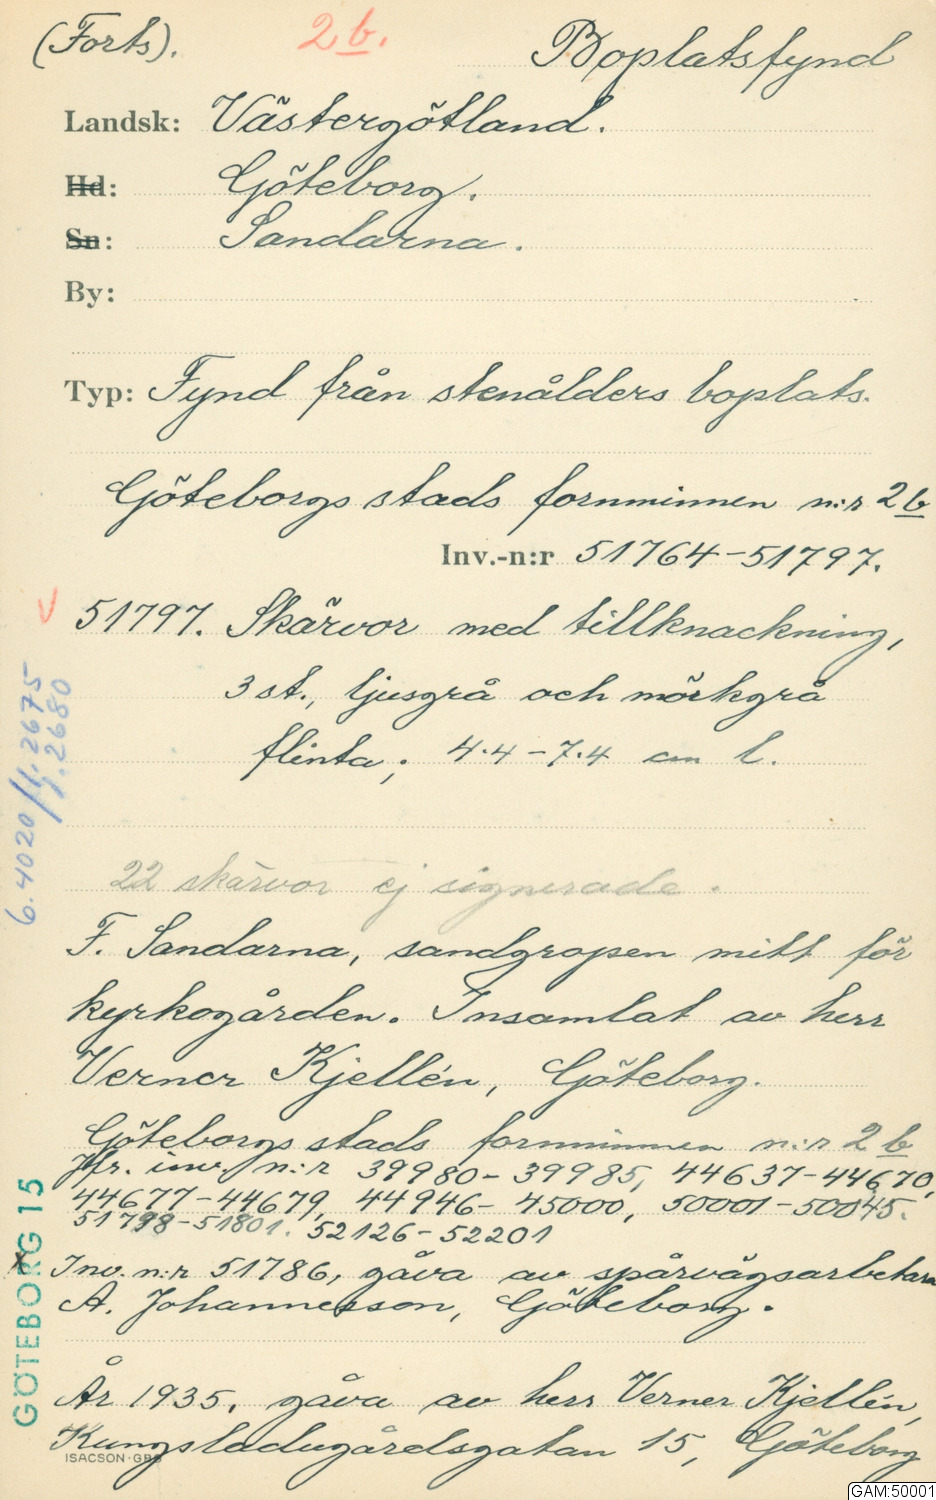 (Forts). 2b. Boplatsfynd
Landsk: Västergötland.
Hd: Göteborg.
Sn: Sandarna.
By:
Typ: Fynd från stenålders boplats.
Göteborgs stads fornminnen n:r 2b
Inv.-n:r 51764-51797.
√ 51797. Skärvor med tillknackning,
3 st., ljusgrå och mörkgrå
flinta; 4.4-7.4 cm l.
22 skärvor ej signerade.
F. Sandarna, sandgropen mitt för
kyrkogården. Insamlat av herr
Verner Kjellén, Göteborg.
Göteborgs stads fornminnen n:r 2b
Jfr. inv. n:r 39980-39985, 44637-44670,
44677-44679, 44946-45000, 50001-50045.
51798-51801. 52126-52201
x Inv. n:r 51786, gåva av spårvägsarbetaren
A. Johannesson, Göteborg.
År 1935, gåva av herr Verner Kjellén,
Kungsladugårdsgatan 15, Göteborg
ISACSON·GBG
6.4020/1.2675
1.2680
GÖTEBORG 15
GAM:50001